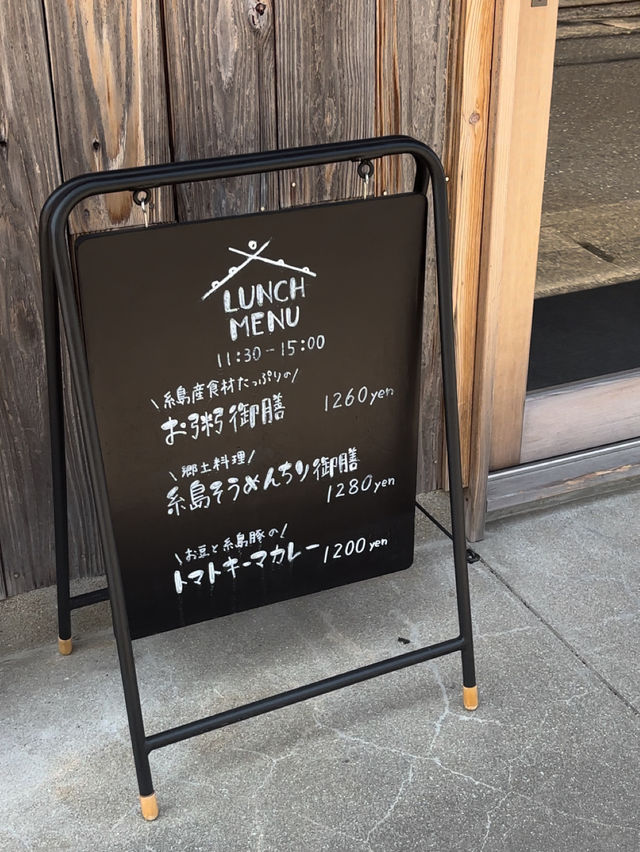 LUNCH
MENU
11:30-15:00
\糸島産食材たっぷりの/
お粥御膳 1260yen
\郷土料理/
糸島そうめんちり御膳
1280yen
\お豆と糸島豚の/
トマトキーマカレー 1200yen